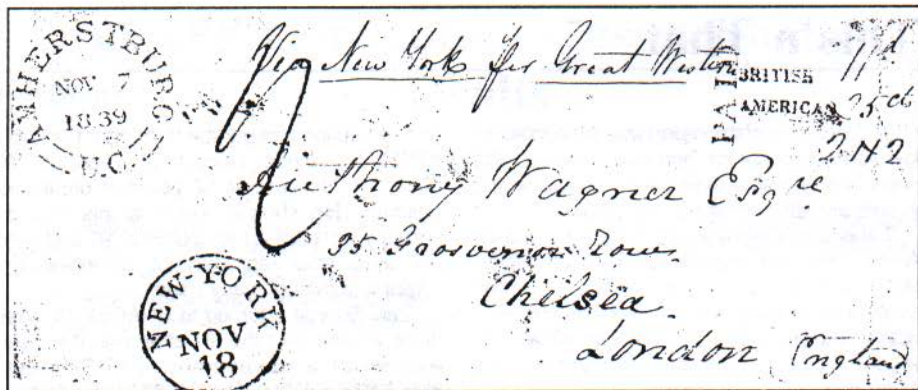 AMHERSTBURG
NOV 7
1839
U.C.
Via New York per Great Western
PAID
BRITISH
AMERICAN
11d
25cts
2N2
Anthony Wagner Esqre
35 Grosvenor Row
Chelsea
London England
NEW-YORK
NOV
18